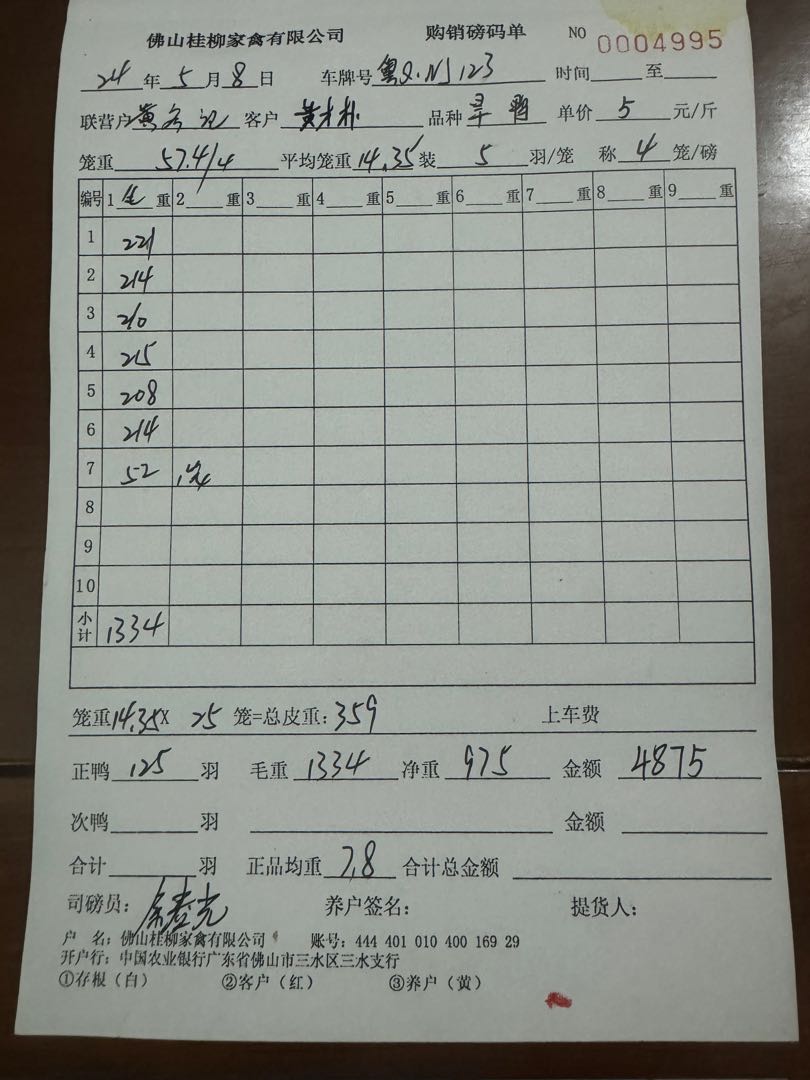 佛山桂柳家禽有限公司 购销磅码单 NO 0004995
24 年 5 月 8 日 车牌号 粤 NJ123 时间 至
联营户 黄 客户 黄 品种 旱鸭 单价 5 元/斤
笼重 57.4/4 平均笼重 14.35 装 5 羽/笼 称 4 笼/磅
编号 1 重 2 重 3 重 4 重 5 重 6 重 7 重 8 重 9 重
1 221
2 214
3 210
4 215
5 208
6 214
7 52
8
9
10
小计 1334
笼重 14.35 X 25 笼=总皮重: 359 上车费
正鸭 125 羽 毛重 1334 净重 975 金额 4875
次鸭 羽 金额
合计 羽 正品均重 7.8 合计总金额
司磅员: 养户签名: 提货人:
户 名: 佛山桂柳家禽有限公司 账号: 444 401 010 400 169 29
开户行: 中国农业银行广东省佛山市三水区三水支行
①存根(白) ②客户(红) ③养户(黄)